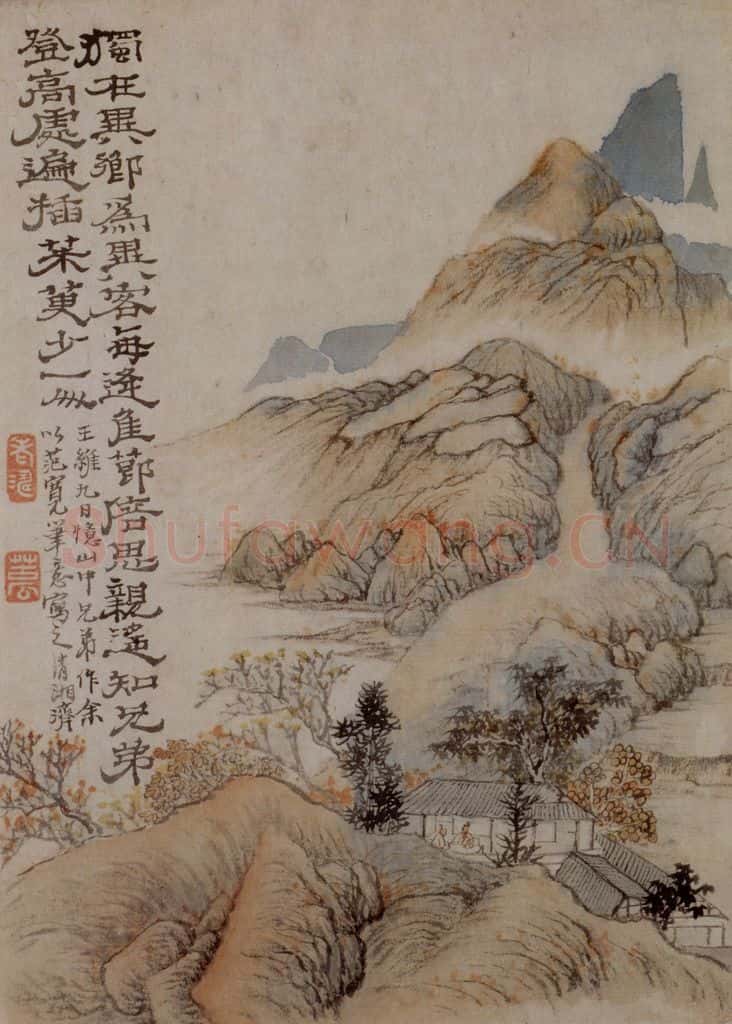 獨在異鄉為異客每逢佳節倍思親遙知兄弟
登高處遍插茱萸少一人
王維九日憶山中兄弟作余
以范寬筆意寫之清湘濟
shufawang.CN